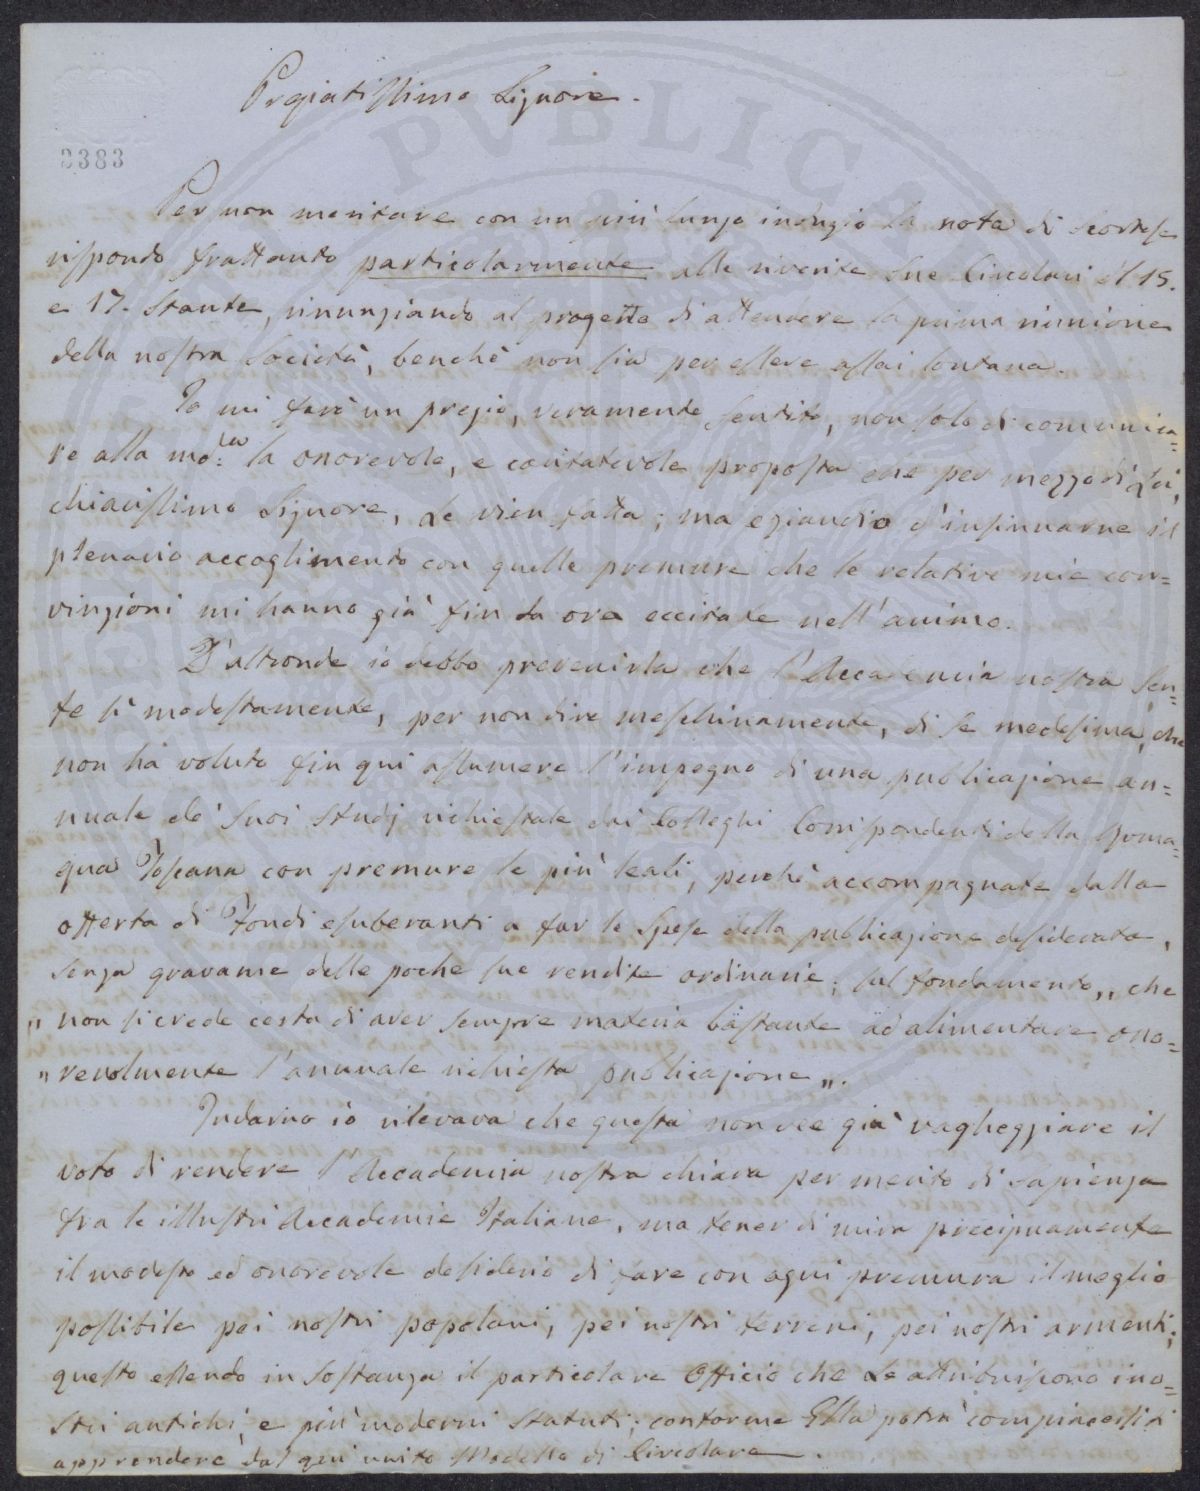 Pregiatissimo Signore.
3383
Per non meritare con un più lungo indugio la nota di scortese
rispondo frattanto particolarmente alle riverite sue Circolari d'l 15.
e 17. stante, rinunziando al progetto di attendere la prima riunione
della nostra Società, benchè non sia per essere assai lontana.
Io mi farò un pregio, veramente sentito, non solo di comunica=
re alla med:ma la onorevole, e caritatevole proposta che per mezzo di Lei,
chiarissimo Signore, Le vien fatta; ma eziandio d'insinuarne il
plenario accoglimento con quelle premure che le relative mie con=
vinzioni mi hanno già fin da ora eccitate nell'animo.
D'altronde io debbo prevenirla che l'Accademia nostra sen=
te sì modestamente, per non dire meschinamente, di se medesima, che
non ha voluto fin qui assumere l'impegno di una publicazione an=
nuale de' suoi studj richiestale dai Colleghi Corrispondenti della Roma=
gna Toscana con premure le più leali, perchè accompagnate dalla
offerta di Fondi esuberanti a far le spese della publicazione desiderata,
senza gravame delle poche sue rendite ordinarie; sul fondamento „ che
„ non si crede certa di aver sempre materia bastante ad alimentare ono=
„ revolmente l'annuale richiesta publicazione „.
Indarno io rilevava che questa non dee già vagheggiare il
voto di rendere l'Accademia nostra chiara per merito di sapienza
fra le illustri Accademie Italiane, ma tener di mira precipuamente
il modesto ed onorevole desiderio di fare con ogni premura il meglio
possibile pei nostri popolani, pei nostri terreni, pei nostri armenti;
questo essendo in sostanza il particolare Officio che Le attribuiscono i no=
stri antichi, e più moderni statuti; conforme Ella potrà compiacersi di
apprendere dal qui unito Modello di Circolare.
PUBLICA